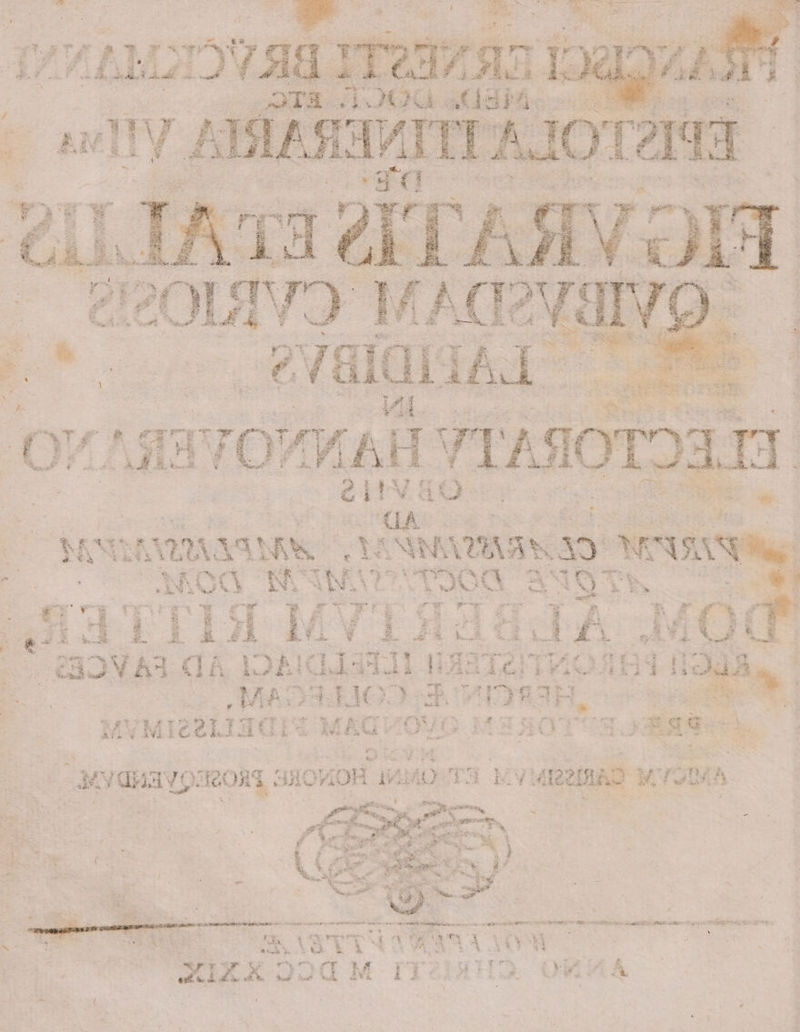 FRANCISCI ERNESTI BRVCKMANNI
DOCT. ETC.
EPISTOLA ITINERARIA VIIma
DE
FIGVRATIS ET ALIIS
QVIBVSDAM CVRIOSIS
LAPIDIBVS
IN
ELECTORATV HANNOVERANO
OBVIIS
AD
VIRVM
ATQVE DOCTISSIMVM DOM.
DOM. ALBERTVM RITTER,
ILFELDICI AD FAVCES
COLLEGAM,
QVONDAM FIDELISSIMVM
NVNC
AMICVM CARISSIMVM ET OMNI HONORE PROSEQVENDVM.
ANNO CHRISTI M DCC XXIX.